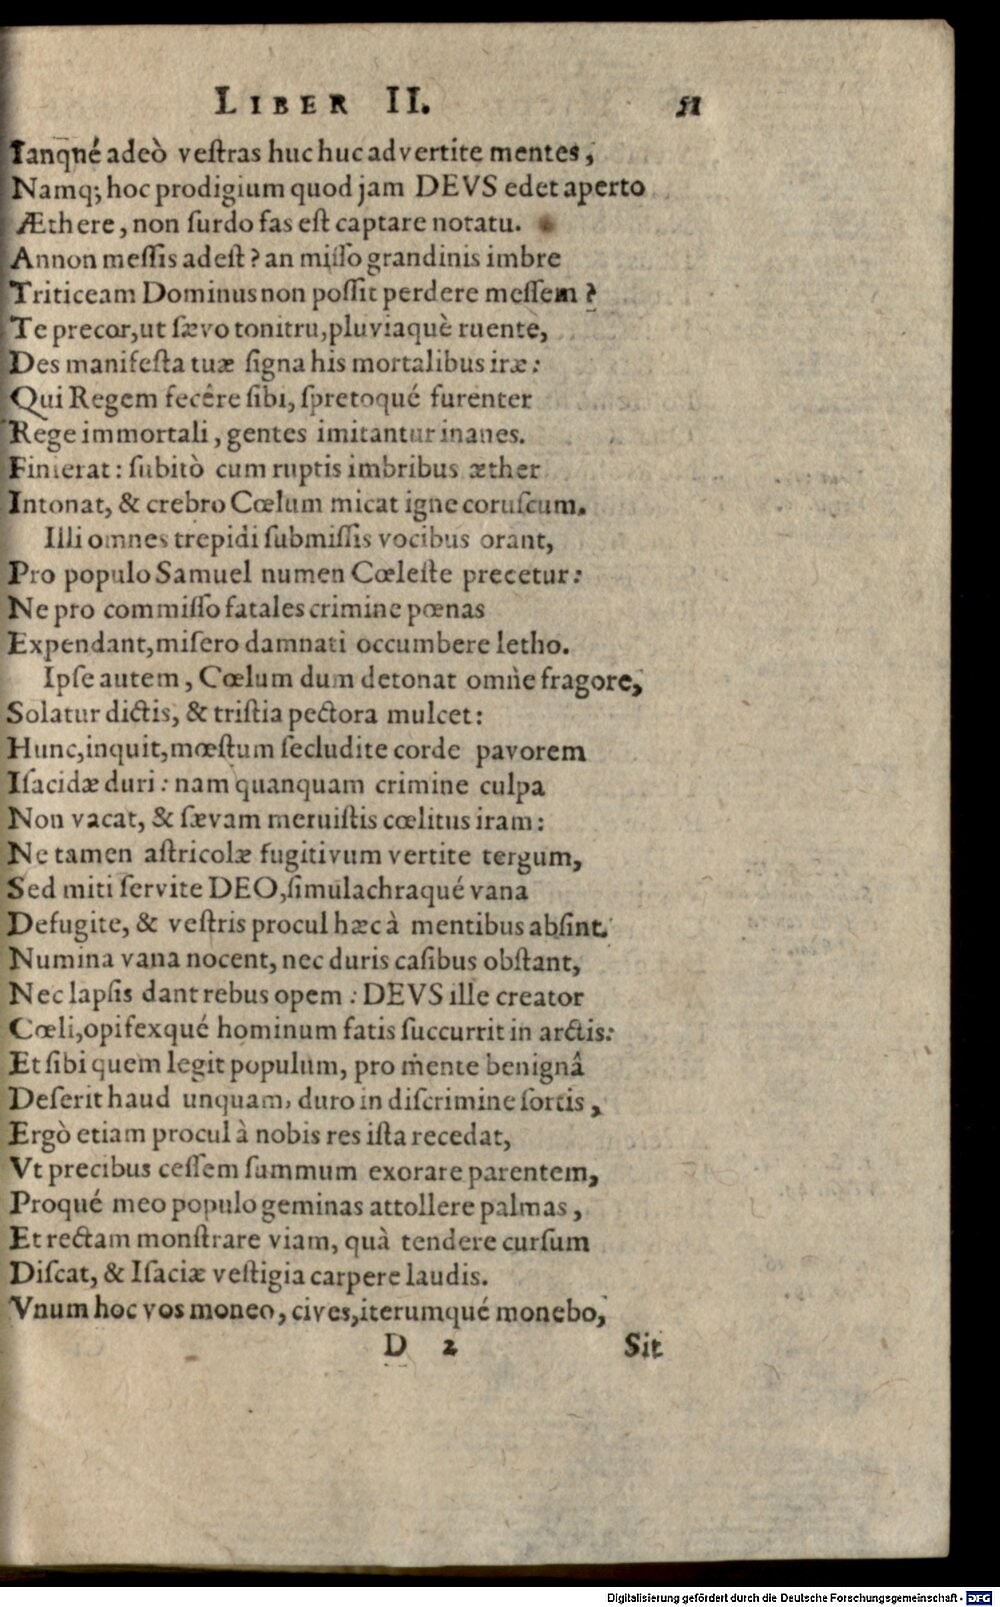 LIBER II. 51
Ianq̃ué adeò veſtras huc huc advertite mentes,
Namq; hoc prodigium quod jam DEVS edet aperto
Æthere, non ſurdo fas eſt captare notatu.
Annon meſſis adeſt? an miſſo grandinis imbre
Triticeam Dominus non poſſit perdere meſſem?
Te precor, ut ſævo tonitru, pluviaquè ruente,
Des manifeſta tuæ ſigna his mortalibus iræ:
Qui Regem fecêre ſibi, ſpretoqué furenter
Rege immortali, gentes imitantur inanes.
Finierat: ſubitò cum ruptis imbribus æther
Intonat, & crebro Cœlum micat igne coruſcum.
Illi omnes trepidi ſubmiſſis vocibus orant,
Pro populo Samuel numen Cœleſte precetur:
Ne pro commiſſo fatales crimine pœnas
Expendant, miſero damnati occumbere letho.
Ipſe autem, Cœlum dum detonat omne fragore,
Solatur dictis, & triſtia pectora mulcet:
Hunc, inquit, mœſtum ſecludite corde pavorem
Iſacidæ duri: nam quanquam crimine culpa
Non vacat, & ſævam meruiſtis cœlitus iram:
Ne tamen aſtricolæ fugitivum vertite tergum,
Sed miti ſervite DEO, ſimulachraqué vana
Defugite, & veſtris procul hæc à mentibus abſint.
Numina vana nocent, nec duris caſibus obſtant,
Nec lapſis dant rebus opem: DEVS ille creator
Cœli, opifexqué hominum fatis ſuccurrit in arctis:
Et ſibi quem legit populum, pro mente benignâ
Deſerit haud unquam, duro in diſcrimine ſortis,
Ergò etiam procul à nobis res iſta recedat,
Vt precibus ceſſem ſummum exorare parentem,
Proqué meo populo geminas attollere palmas,
Et rectam monſtrare viam, quà tendere curſum
Diſcat, & Iſaciæ veſtigia carpere laudis.
Vnum hoc vos moneo, cives, iterumqué monebo,
D 2 Sit
Digitalisierung gefördert durch die Deutsche Forschungsgemeinschaft - DFG